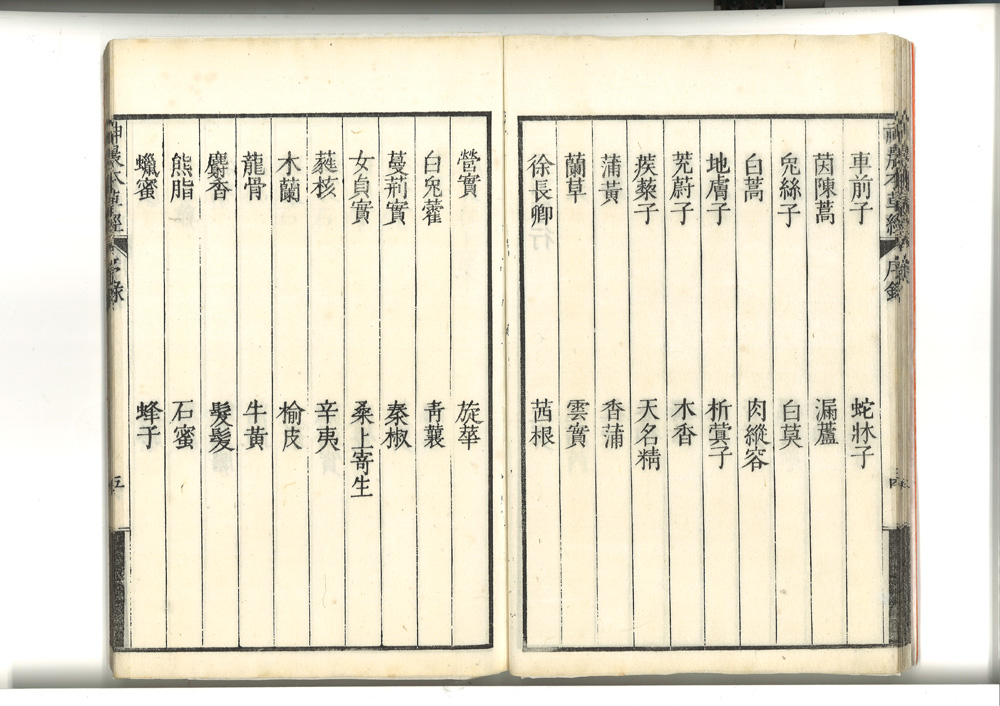 車前子 蛇牀子
茵陳蒿 漏蘆
兔絲子 白莫
白蒿 肉縱容
地膚子 析蓂子
茺蔚子 木香
蒺藜子 天名精
蒲黃 香蒲
蘭草 雲實
徐長卿 茜根
營實 旋華
白兔藿 青蘘
蔓荊實 秦椒
女貞實 桑上寄生
蕤核 辛夷
木蘭 榆皮
龍骨 牛黃
麝香 髮髲
熊脂 石蜜
蠟蜜 蜂子
神農本草經 序錄 五